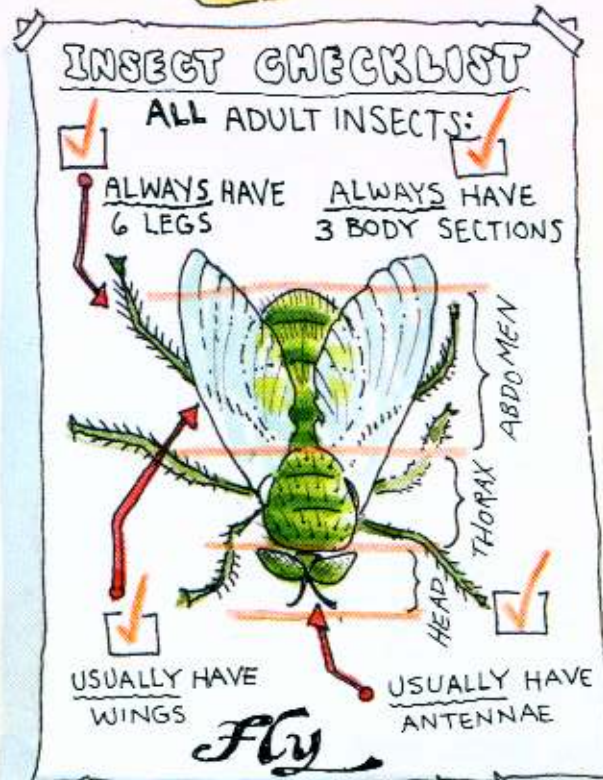 INSECT CHECKLIST
ALL ADULT INSECTS:
ALWAYS HAVE
6 LEGS
ALWAYS HAVE
3 BODY SECTIONS
ABDOMEN
THORAX
HEAD
USUALLY HAVE
WINGS
USUALLY HAVE
ANTENNAE
Fly